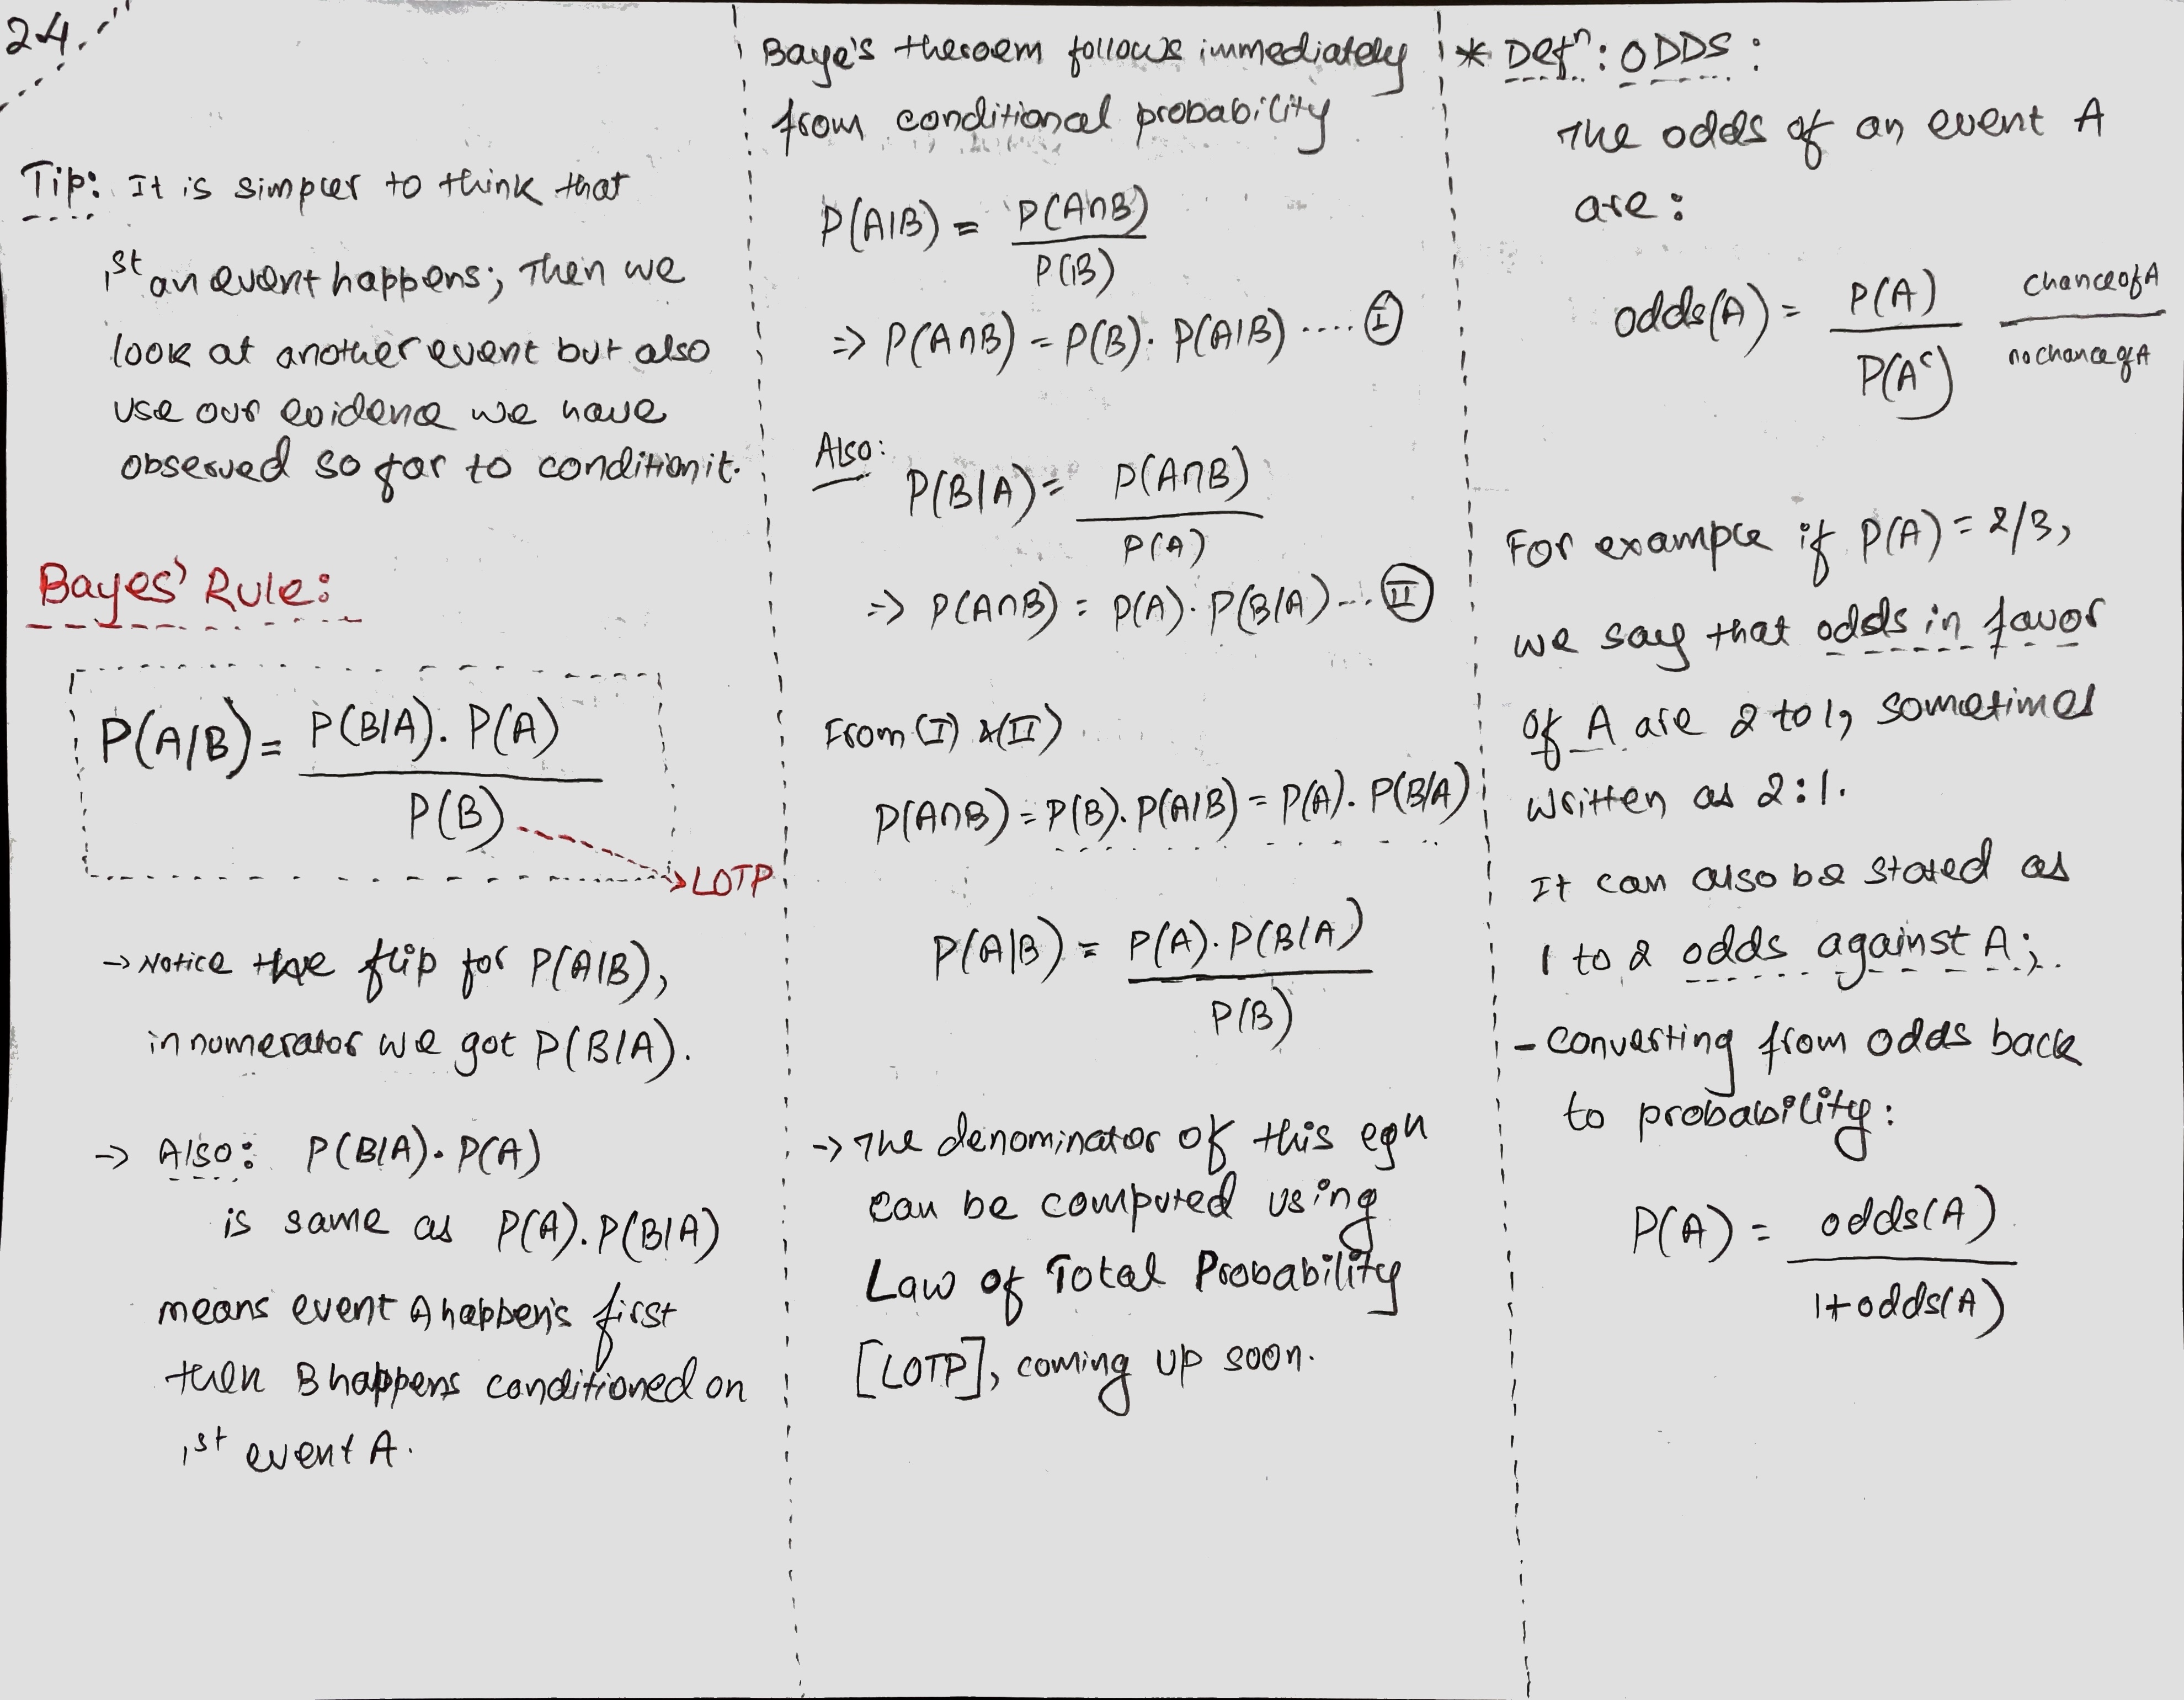 24.
Tip: It is simpler to think that
1st an event happens; Then we
look at another event but also
use our evidence we have
observed so far to condition it.
Bayes' Rule:
P(A|B) = P(B|A). P(A)
P(B)
LOTP
→ Notice the flip for P(A|B),
in numerator we got P(B|A).
→ Also: P(B|A). P(A)
is same as P(A). P(B|A)
means event A happen's first
then B happens conditioned on
1st event A.
Baye's theroem follows immediately
from conditional probability
P(A|B) = P(A∩B)
P(B)
=> P(A∩B) = P(B). P(A|B) .... I
Also:
P(B|A) = P(A∩B)
P(A)
=> P(A∩B) = P(A). P(B|A) ... II
From (I) & (II)
P(A∩B) = P(B). P(A|B) = P(A). P(B|A)
P(A|B) = P(A). P(B|A)
P(B)
→ The denominator of this eqn
can be computed using
Law of Total Probability
[LOTP], coming up soon.
* Defn: ODDS:
The odds of an event A
are:
odds(A) = P(A) chance of A
P(Aᶜ) no chance of A
For example if P(A) = 2/3,
we say that odds in favor
of A are 2 to 1, sometimes
written as 2:1.
It can also be stated as
1 to 2 odds against A;.
- converting from odds back
to probability:
P(A) = odds(A)
1+odds(A)